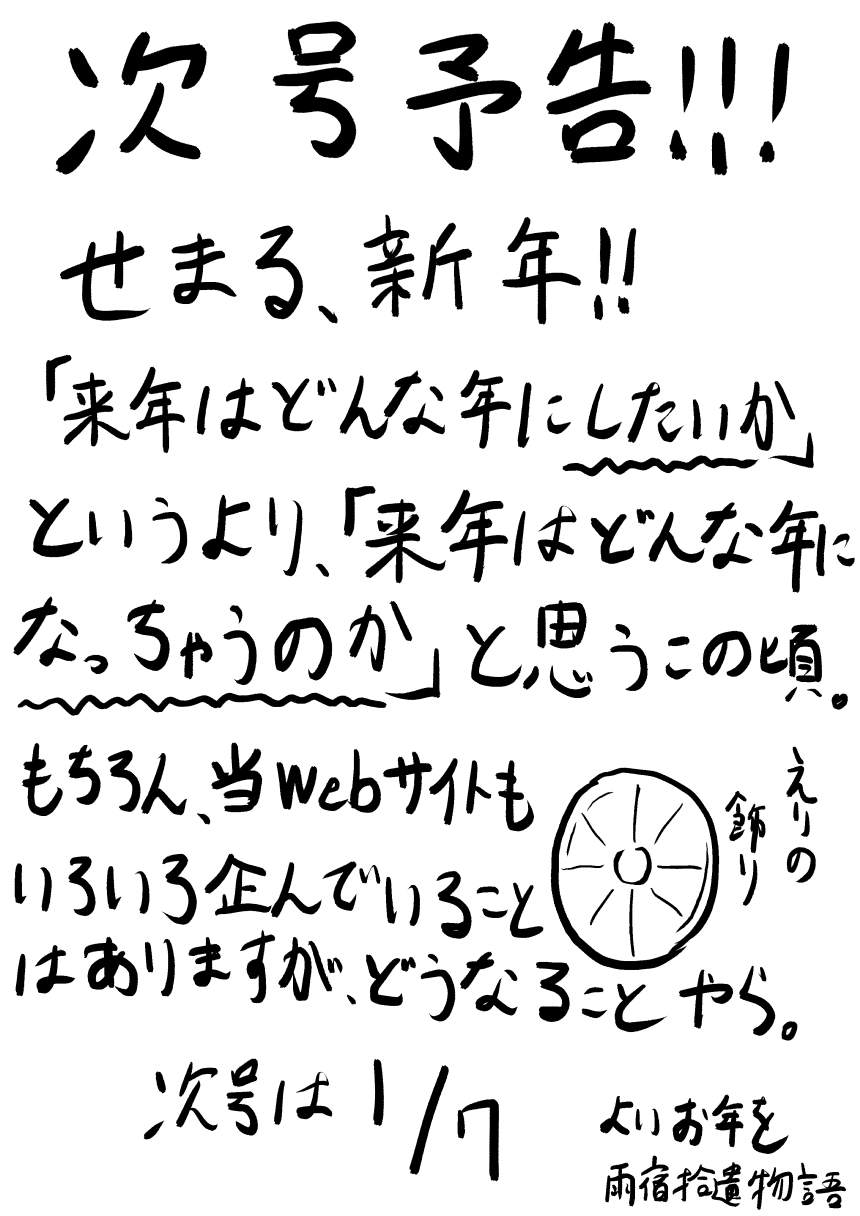 次号予告!!!
せまる、新年!!
「来年はどんな年にしたいか」
というより、「来年はどんな年に
なっちゃうのか」と思うこの頃。
もちろん、当Webサイトも
いろいろ企んでいること
はありますが、どうなることやら。
えりの
飾り
次号は1/7
よいお年を
雨宿拾遺物語